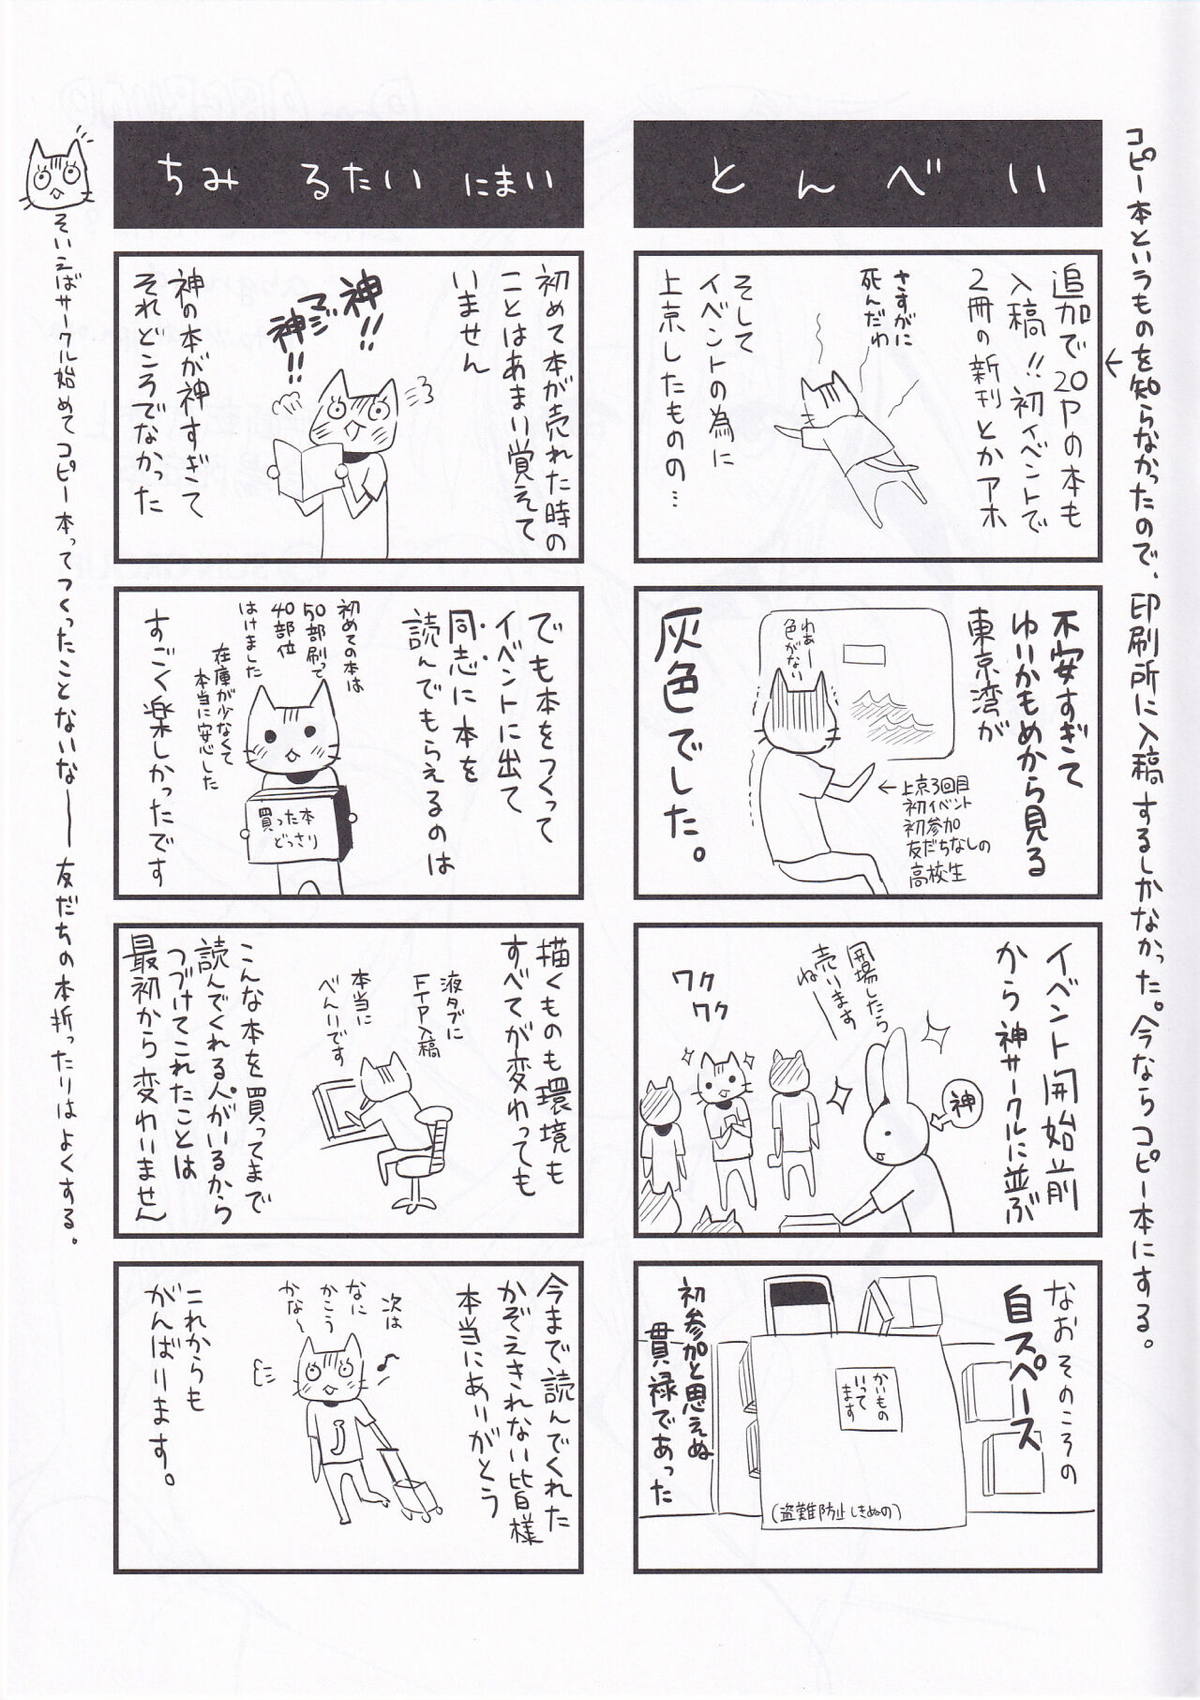 コピー本というものを知らなかったので、印刷所に入稿するしかなかった。今ならコピー本にする。
とんべい
追加で20Pの本も
入稿!!初イベントで
2冊の新刊とかアホ
さすがに
死んだわ
そして
イベントの為に
上京したものの…
不安すぎて
ゆりかもめから見る
東京湾が
わぁー
色がない
←上京3回目
初イベント
初参加
友だちなしの
高校生
灰色でした。
イベント開始前
から神サークルに並ぶ
神
開場したら
売います
ねー
ワク
ワク
なおそのころの
自スペース
かいもの
いって
ます
(盗難防止しきぬの)
初参加と思えぬ
貫禄であった
ちみ るたい にまい
初めて本が売れた時の
ことはあまり覚えて
いません
神!!
マジ
神!!
神の本が神すぎて
それどころでなかった
でも本をつくって
イベントに出て
同志に本を
読んでもらえるのは
初めての本は
50部刷って
40部位
はけました
在庫が少なくて
本当に安心した
買った本
どっさり
すごく楽しかったです
描くものも環境も
すべてが変わっても
液タブに
FTP入稿
本当に
べんりです
こんな本を買ってまで
読んでくれる人がいるから
つづけてこれたことは
最初から変わりません
今まで読んでくれた
かぞえきれない皆様
本当にありがとう
次は
なに
かこう
かな〜
これからも
がんばります。
そいえばサークル始めてコピー本ってつくったことないなー 友だちの本折ったりはよくする。